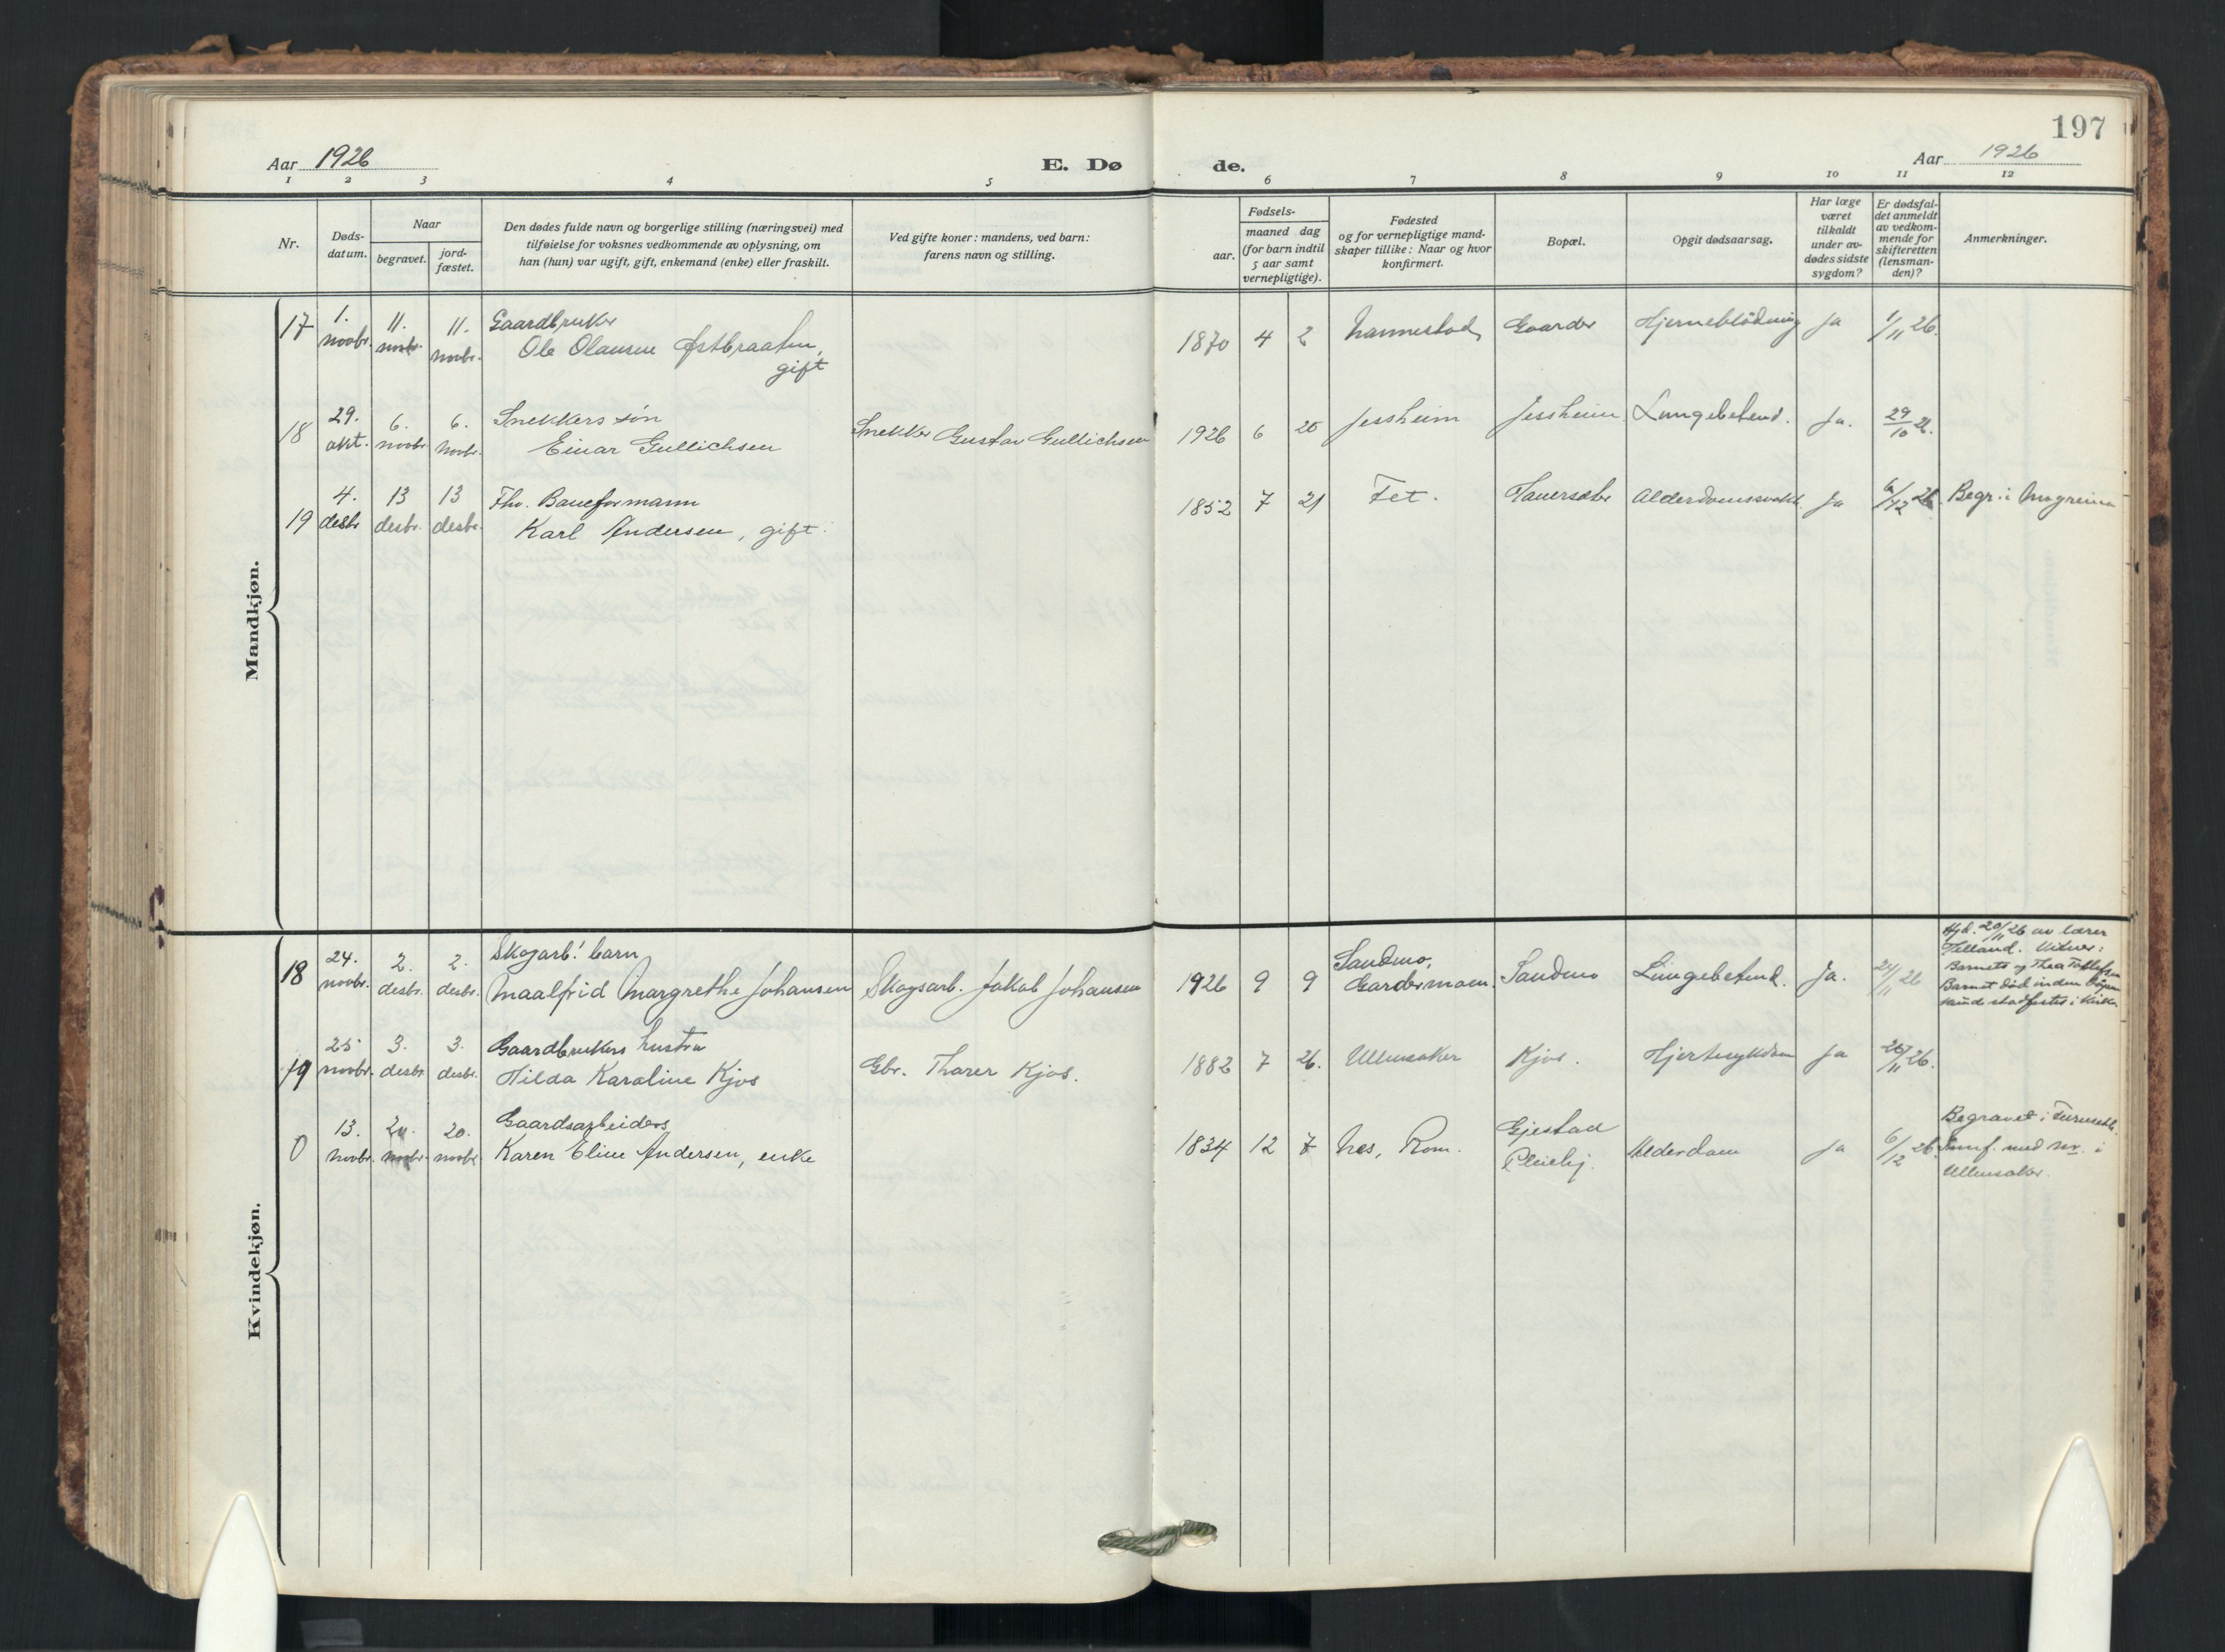 197
Aar 1926
E. Dø
de.
Aar 1926
1 2 3 4 5 6 7 8 9 10 11 12
Nr.
Døds-
datum.
Naar
begravet.
jord-
fæstet.
Den dødes fulde navn og borgerlige stilling (næringsvei) med
tilføielse for voksnes vedkommende av oplysning, om
han (hun) var ugift, gift, enkemand (enke) eller fraskilt.
Ved gifte koner: mandens, ved barn:
farens navn og stilling.
Fødsels-
aar.
maaned dag
(for barn indtil
5 aar samt
vernepligtige).
Fødested
og for vernepligtige mand-
skaper tillike: Naar og hvor
konfirmert.
Bopæl.
Opgit dødsaarsag.
Har læge
været
tilkaldt
under av-
dødes sidste
sygdom?
Er dødsfal-
det anmeldt
av vedkom-
mende for
skifteretten
(lensman-
den)?
Anmerkninger.
Mandkjøn.
17 1. novbr. 11. novbr. 11. novbr.
Gaardbruker
Ole Olausen Østbraaten,
gift
1870 4 2 Nannestad Gaarder Hjerneblödning Ja 1/11 26.
18 29. okt. 6. novbr. 6. novbr.
Snekkers søn
Einar Gullichsen
Snekker Gustav Gullichsen
1926 6 20 Jessheim Jessheim Lungebetend. Ja. 29/10 26.
19 4. desbr. 13 desbr. 13 desbr.
Fhv. Baneformann
Karl Andersen, gift.
1852 7 21 Fet. Alderdomssvakh. Ja 6/12 26. Begr. i Mogreina
Kvindekjøn.
18 24. novbr. 2. desbr. 2. desbr.
Skogarb! barn
Maalfrid Margrethe Johansen
Skogsarb. Jakob Johansen
1926 9 9 Sandmo,
Gardermoen. Sandmo Lungebetend. Ja. 24/11 26
Hjd. 20/11 26 av lærer
Helland. Vidner:
Barnets og Thea Tollefsen
Barnet död inden
stadfestes i kirken
19 25 novbr. 3. desbr. 3. desbr.
Gaardbrukers hustru
Hilda Karoline Kjos
Gbr. Thorer Kjos.
1882 7 26. Ullensaker Kjos. Hjertesykdom Ja 26/11 26.
0 13. novbr. 20. novbr. 20. novbr.
Gaardsarbeiders
Karen Eline Andersen, enke
1834 12 7 Nes, Rom. Gjestad
Pleiehj. Alderdom Ja 6/12 26.
Begravet i Furuseth.
med nr. i
Ullensaker.